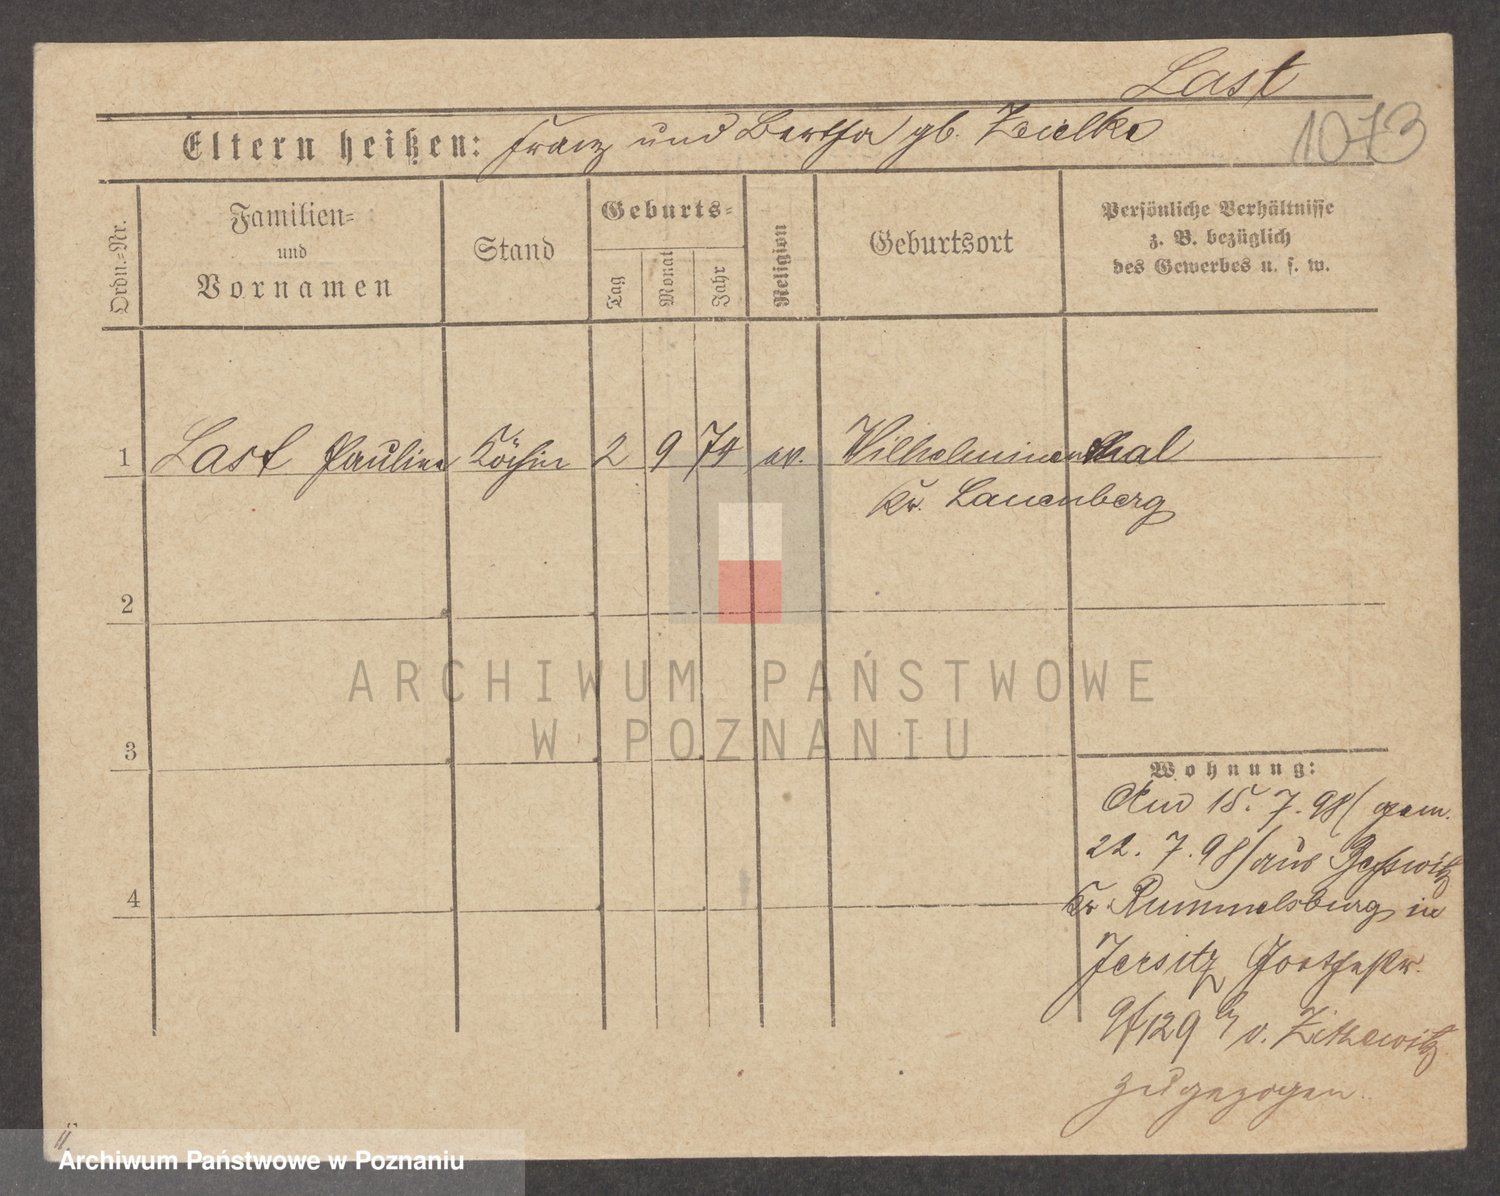 Last
1073
Eltern heißen: Franz und Bertha gb. Zielke
Ordn.=Nr.
Familien=
und
Vornamen
Stand
Geburts=
Tag
Monat
Jahr
Religion
Geburtsort
Persönliche Verhältnisse
z. B. bezüglich
des Gewerbes u. s. w.
1 Last Pauline Köchin 2 9 74 ev. Wilhelminenthal
Kr. Lauenberg
2
3
4
ARCHIWUM PAŃSTWOWE
W POZNANIU
Wohnung:
Am 15. 7. 98 (gem.
22. 7. 98) aus
Kr Rummelsburg in
Jersitz Goethestr.
v. Zitzewitz
zugezogen.
ü
Archiwum Państwowe w Poznaniu